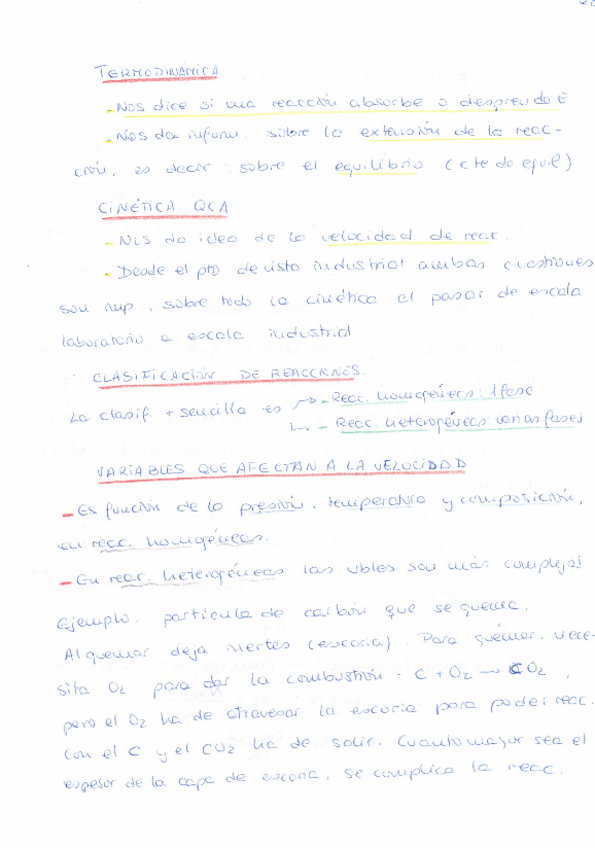 TERMODINÁMICA
- Nos dice si una reacción absorbe o desprende E
- Nos da inform. sobre la extensión de la reac-
ción, es decir, sobre el equilibrio (cte de equil)
CINÉTICA QCA
- Nos da idea de la velocidad de reac.
- Desde el pto de vista industrial ambas cuestiones
son imp, sobre todo la cinética al pasar de escala
laboratorio a escala industrial
CLASIFICACIÓN DE REACCIONES.
La clasif. + sencilla es → - Reac. homogéneas: 1 fase
→ - Reac. heterogéneas: varias fases
VARIABLES QUE AFECTAN A LA VELOCIDAD
- Es función de la presión, temperatura y composición,
en reac. homogéneas.
- En reac. heterogéneas las vbles son más complejas
Ejemplo. partícula de carbón que se quema.
Al quemar deja inertes (escoria). Para quemar, nece-
sita O2 para dar la combustión: C + O2 → CO2,
pero el O2 ha de atravesar la escoria para poder reac.
con el C y el CO2 ha de salir. Cuanto mayor sea el
espesor de la capa de escoria, se complica la reac.